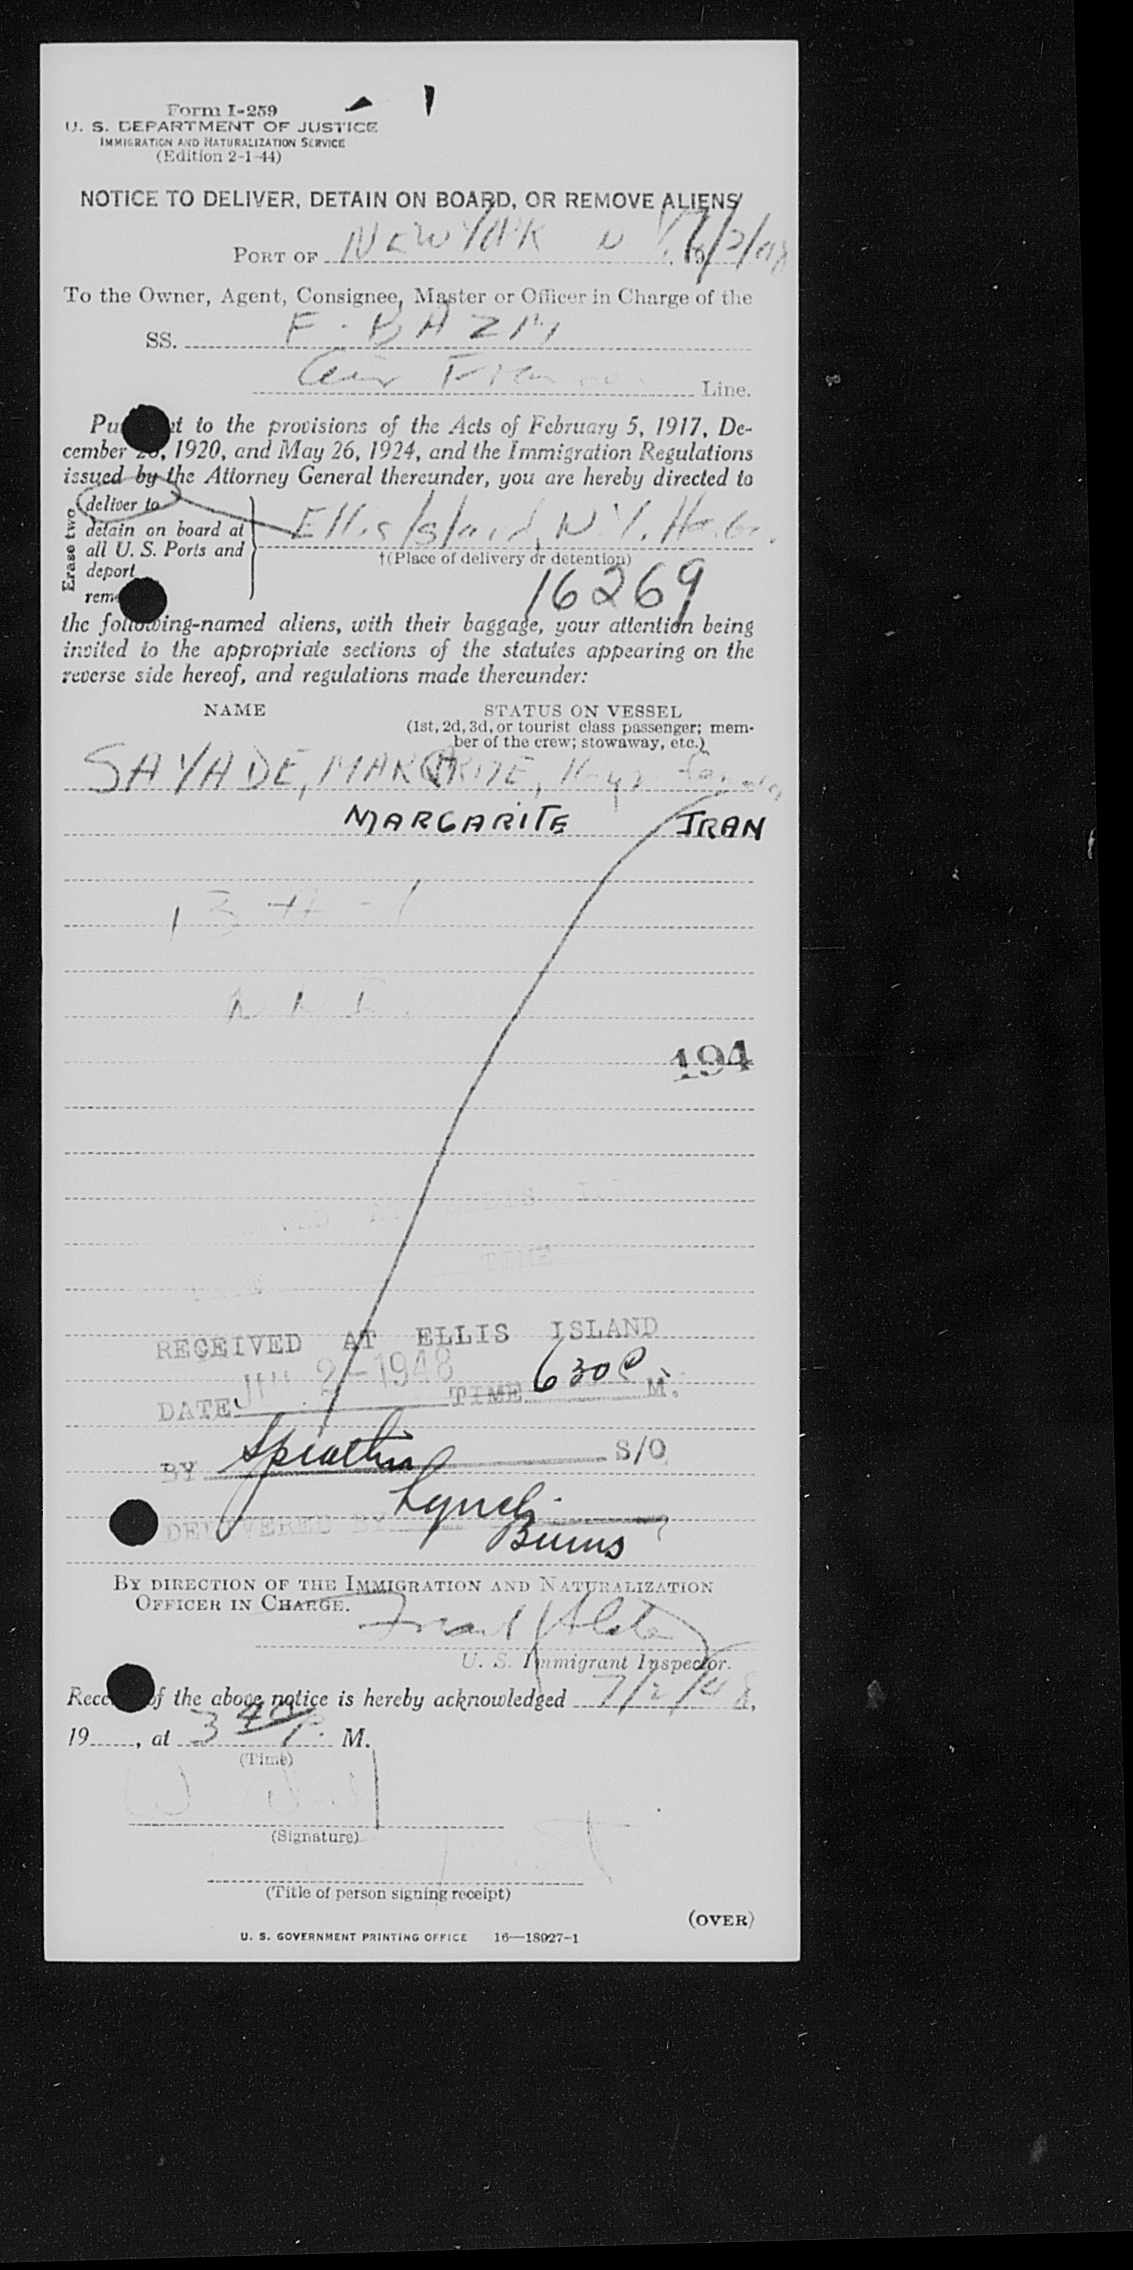 Form I-259
U. S. DEPARTMENT OF JUSTICE
IMMIGRATION AND NATURALIZATION SERVICE
(Edition 2-1-44)
NOTICE TO DELIVER, DETAIN ON BOARD, OR REMOVE ALIENS
PORT OF NEW YORK N Y. 19 7/2/48
To the Owner, Agent, Consignee, Master or Officer in Charge of the
SS. F. BAZM
Air France Line.
Pu t to the provisions of the Acts of February 5, 1917, De-
cember 26, 1920, and May 26, 1924, and the Immigration Regulations
issued by the Attorney General thereunder, you are hereby directed to
Erase two
deliver to
detain on board at
all U. S. Ports and
deport
rem
Ellis Island, N.Y. Harbor.
†(Place of delivery or detention)
16269
the following-named aliens, with their baggage, your attention being
invited to the appropriate sections of the statutes appearing on the
reverse side hereof, and regulations made thereunder:
NAME STATUS ON VESSEL
(1st, 2d, 3d, or tourist class passenger; mem-
ber of the crew; stowaway, etc.)
SAYADE,
MARGARITE IRAN
194
RECEIVED AT ELLIS ISLAND
DATE JUL 2-1948 TIME 630 P M.
BY S/O
Lynch
DELIVERED BY Burns
BY DIRECTION OF THE IMMIGRATION AND NATURALIZATION
OFFICER IN CHARGE.
U. S. Immigrant Inspector.
Rece of the above notice is hereby acknowledged 7/2/48,
19 , at 3 40 P. M.
(Time)
(Signature)
(Title of person signing receipt)
(OVER)
U. S. GOVERNMENT PRINTING OFFICE 16—18927-1